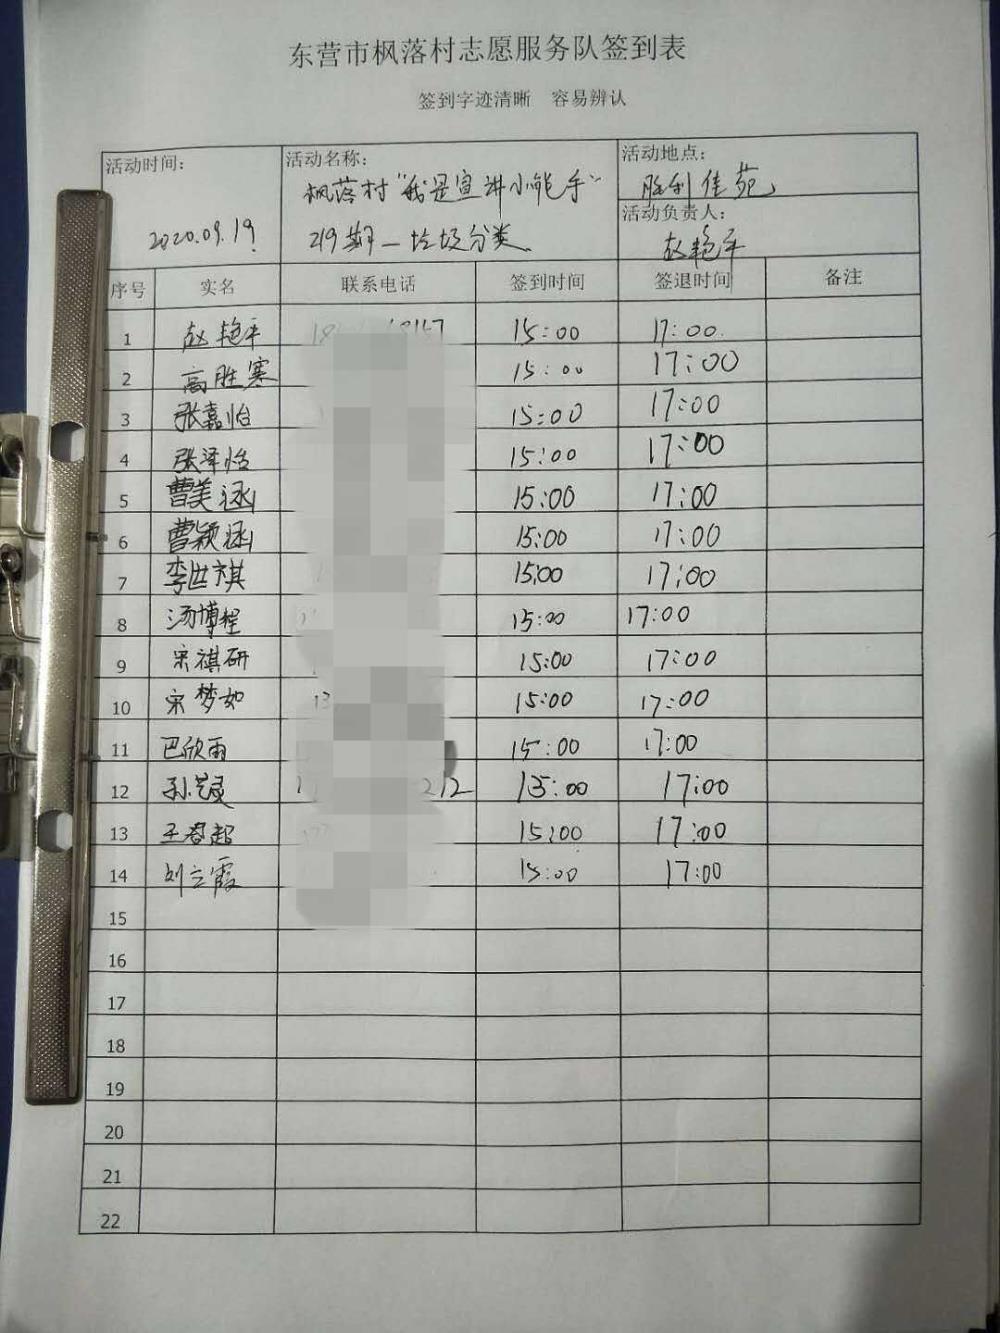 东营市枫落村志愿服务队签到表
签到字迹清晰 容易辨认
活动时间：
2020.09.19
活动名称：
枫落村“我是宣讲小能手”
219期—垃圾分类
活动地点：
胜利佳苑
活动负责人：
赵艳平
序号 实名 联系电话 签到时间 签退时间 备注
1 赵艳平 15:00 17:00
2 高胜寒 15:00 17:00
3 张嘉怡 15:00 17:00
4 张泽怡 15:00 17:00
5 曹美涵 15:00 17:00
6 曹颖涵 15:00 17:00
7 李世祺 15:00 17:00
8 汤博程 15:00 17:00
9 宋祺研 15:00 17:00
10 宋梦如 15:00 17:00
11 巴欣雨 15:00 17:00
12 212 15:00 17:00
13 王春超 15:00 17:00
14 刘立霞 15:00 17:00
15
16
17
18
19
20
21
22